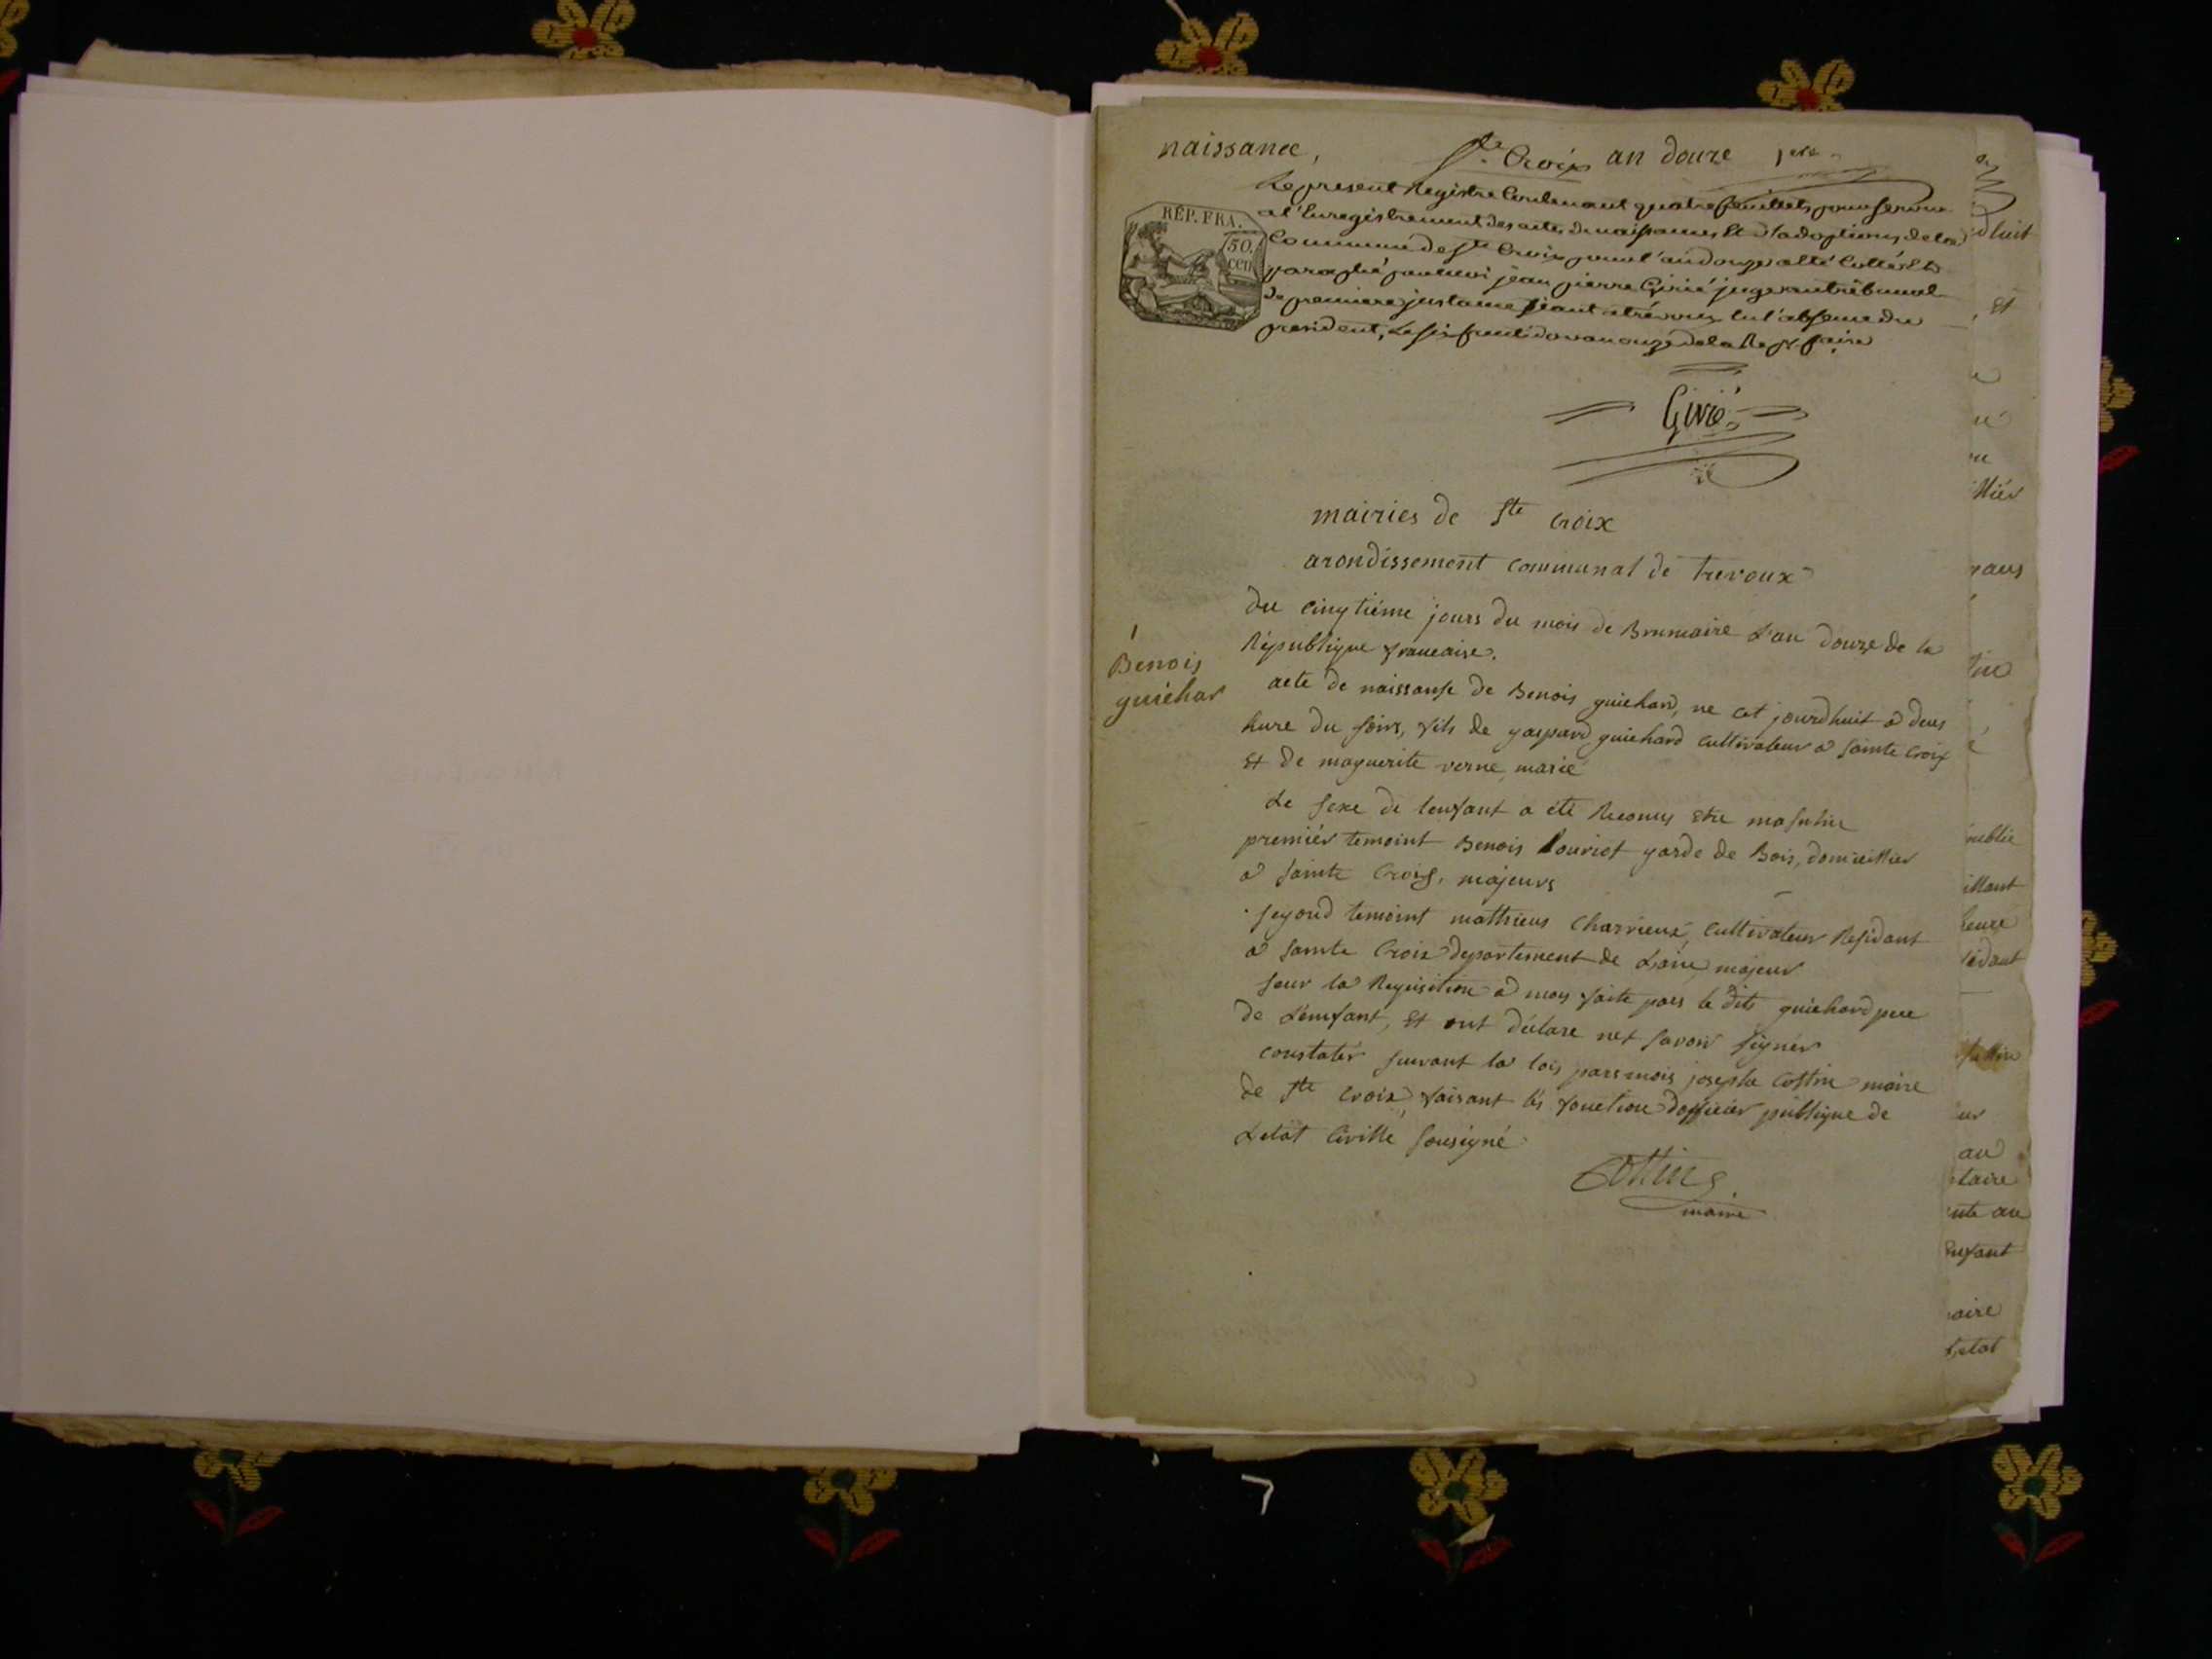 naissance, Ste Croix an douze 1ere
Le present Registre Contenant quatre feuillets pour servir
a l'Enregistrement des actes de naissances Et d'adoptions de la
Commune de Ste Croix pour l'an douze a été Cotté Et
paraphé par moi jean pierre Girié juge au tribunal
de premiere instance séant a trévoux en l'absence du
president, Le six fructidor an onze de la Rep. f.
RÉP. FRA.
50.
cen
Girié
mairies de Ste Croix
arondissement communal de Trevoux
du cinqtiéme jours du mois de Brumaire L'an douze de la
Républiqve francaise.
1
Benois
guichar
acte de naissanse de Benois guichard, ne cet jourdhuit a deus
hure du soirs, fils de gaspard guichard cultivateur a sainte Croix
Et de maguerite verne marié
Le sexe de lenfant a été Reconus Etre masculin
premiér temoint Benois Louriot garde de Bois, domicillier
a sainte Croix, majeurs
segond temoint mathieus Charrieux, cultivateur Residant
a sainte Croix departement de Lain majeur
seur la Requisition a moy faite pars le dits guichard pere
de L'emfant, Et ont déclare net savoir signér
constatér suivant la lois pars mois josephe Cottin maire
de Ste Croix, faisant lés fonction dofficiér publique de
Letat Civille sousigné
Cottin
maire
duit
Et
illiér
publie
illant
heure
sidant
au
taire
ente au
Enfant
aire
Letat